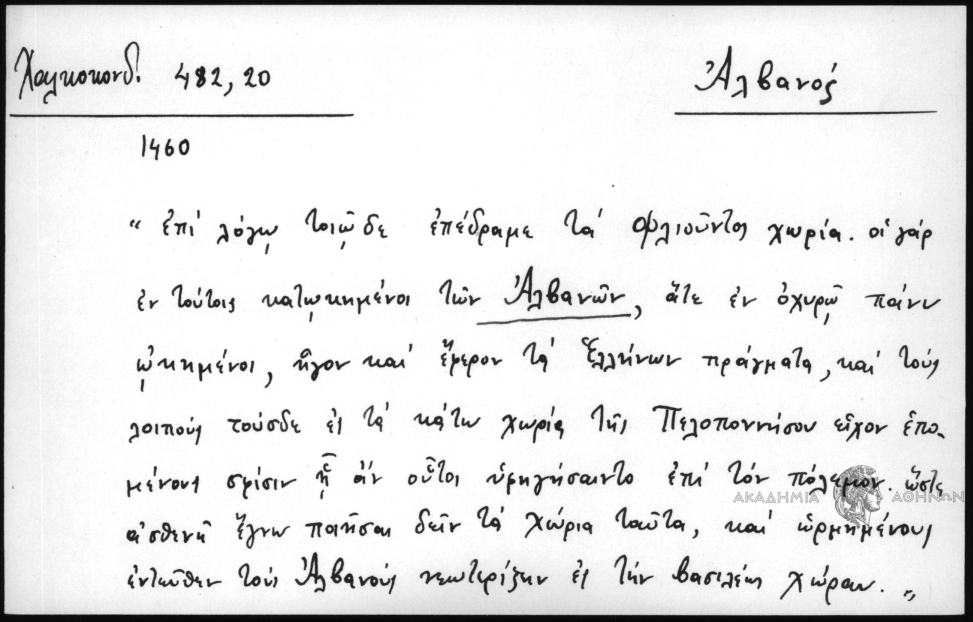 Χαλκοκονδ. 482,20
Ἀλβανός
1460
“ ἐπὶ λόγῳ τοιῷδε ἐπέδραμε τά Φλιοῦντος χωρία. οἱ γάρ
ἐν τούτοις κατῳκημένοι τῶν Ἀλβανῶν, ἅτε ἐν ὀχυρῷ πάνυ
ᾠκημένοι, ἦγον καί ἔφερον τά Ἑλλήνων πράγματα, καί τούς
λοιπούς τούσδε ἐς τά κάτω χωρία τῆς Πελοποννήσου εἶχον ἑπο-
μένους σφίσιν ᾗ ἄν οὗτοι ὑφηγήσαιντο ἐπί τόν πόλεμον. ὥστε
ἀσθενῆ ἔγνω ποιῆσαι δεῖν τά χώρια ταῦτα, καί ὡρμημένους
ἐντεῦθεν τούς Ἀλβανούς νεωτερίζειν ἐς τήν βασιλέως χώραν. „
ΑΚΑΔΗΜΙΑ ΑΘΗΝΩΝ